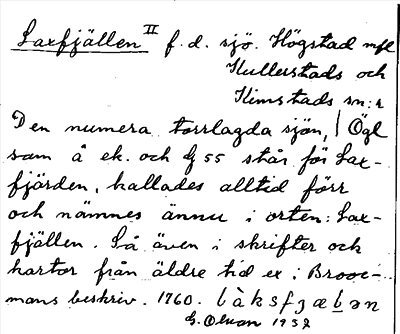 Laxfjällen II f.d. sjö. Högstad mfl
Kullerstads och
Kimstads sn:r
Ögl
Den numera torrlagda sjön,
som å ek. och Gs 55 står för Lax-
fjärden, kallades alltid förr
och nämnes ännu i orten: Lax-
fjällen. Så även i skrifter och
kartor från äldre tid ex: Brooc-
mans beskriv. 1760.
G. Olson 1932